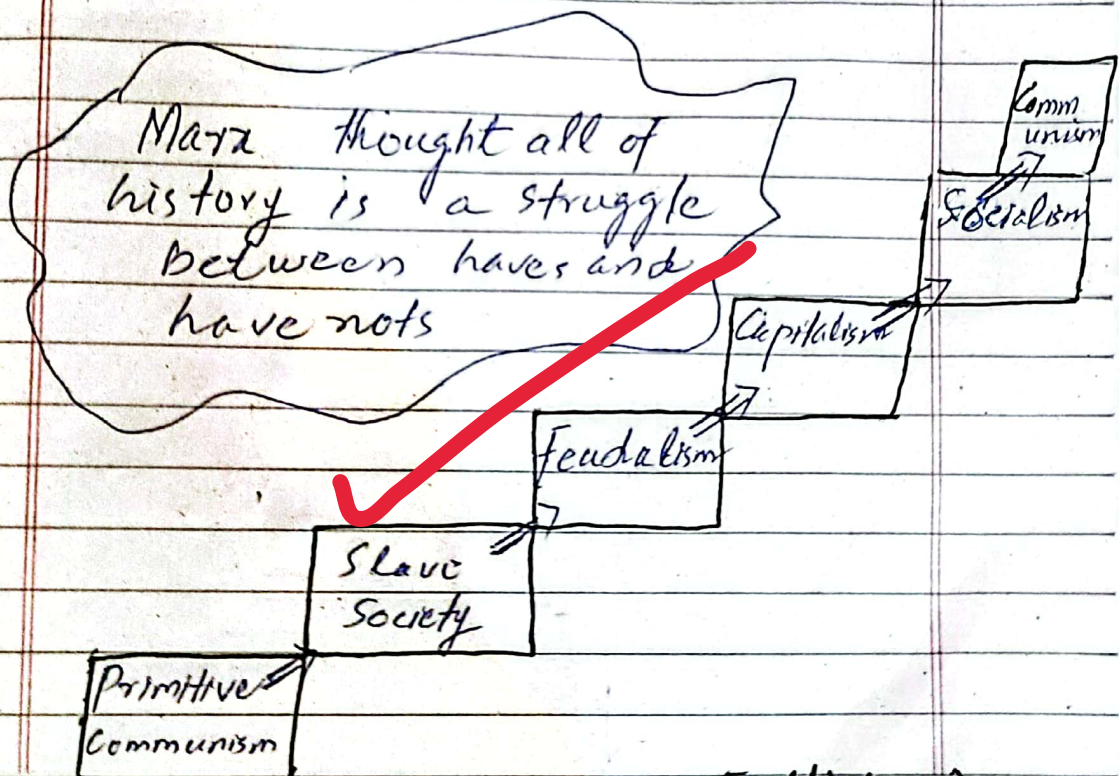 Marx thought all of
history is a struggle
between haves and
have nots
Comm
unism
Socialism
Capitalism
Feudalism
Slave
Society
Primitive
Communism